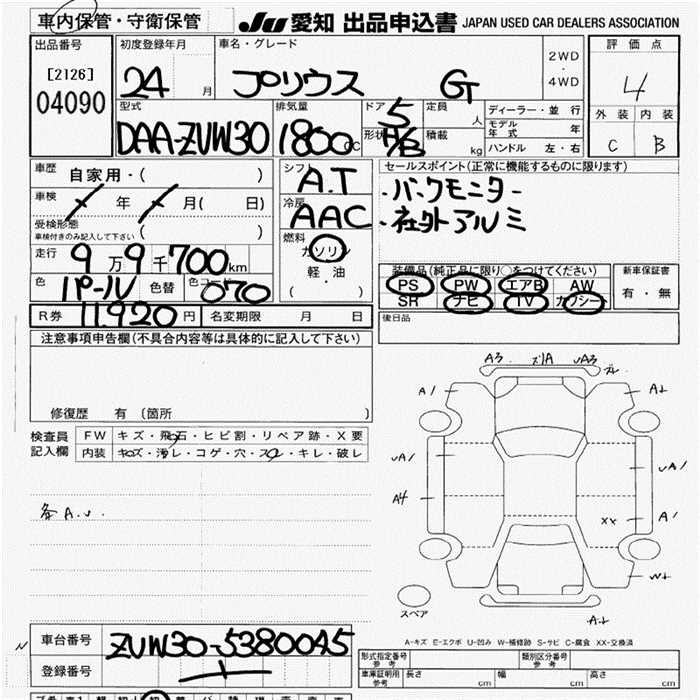 車内保管・守衛保管 JU 愛知 出品申込書 JAPAN USED CAR DEALERS ASSOCIATION
出品番号 初度登録年月 車名・グレード 2WD ・ 4WD 評価点
[2126] 24 月 プリウス G 4
04090
型式 排気量 ドア 5 定員 人 ディーラー・並行 外装 内装
DAA-ZVW30 1800 CC 形状 H/B 積載 kg モデル年式 年 C B
ハンドル 左・右
車歴 自家用・( ) シフト A.T セールスポイント(正常に機能するものに限ります)
車検 年 月( 日) 冷房 AAC ・パークモニター
受検形態 ・社外アルミ
車検付きのみ記入して下さい ( ) 燃料
走行 9万9千700km ガソリン
軽・油
( ・ )
色 パール 色替 色コード 070
装備品(純正品に限り○をつけてください) 新車保証書
PS PW エアB AW 有・無
SR ナビ TV カワシート
R券 11,920円 名変期限 月 日 後日品
注意事項申告欄(不具合内容等は具体的に記入して下さい)
修復歴 有 〔箇所 〕
検査員記入欄 FW キズ・飛石・ヒビ割・リペア跡・X要
内装 キズ・汚レ・コゲ・穴・スレ・キレ・破レ
A3 ズ1A UA3
A1
UA1 UA1
A4 XX A1
スペア
A-キズ E-エクボ U-凹み W-補修跡 S-サビ C-腐食 XX-交換済
車台番号 ZVW30-5380045
登録番号
形式指定番号 参考 類別区分番号 参考
車庫証明用 参考 長さ cm 幅 cm 高さ cm